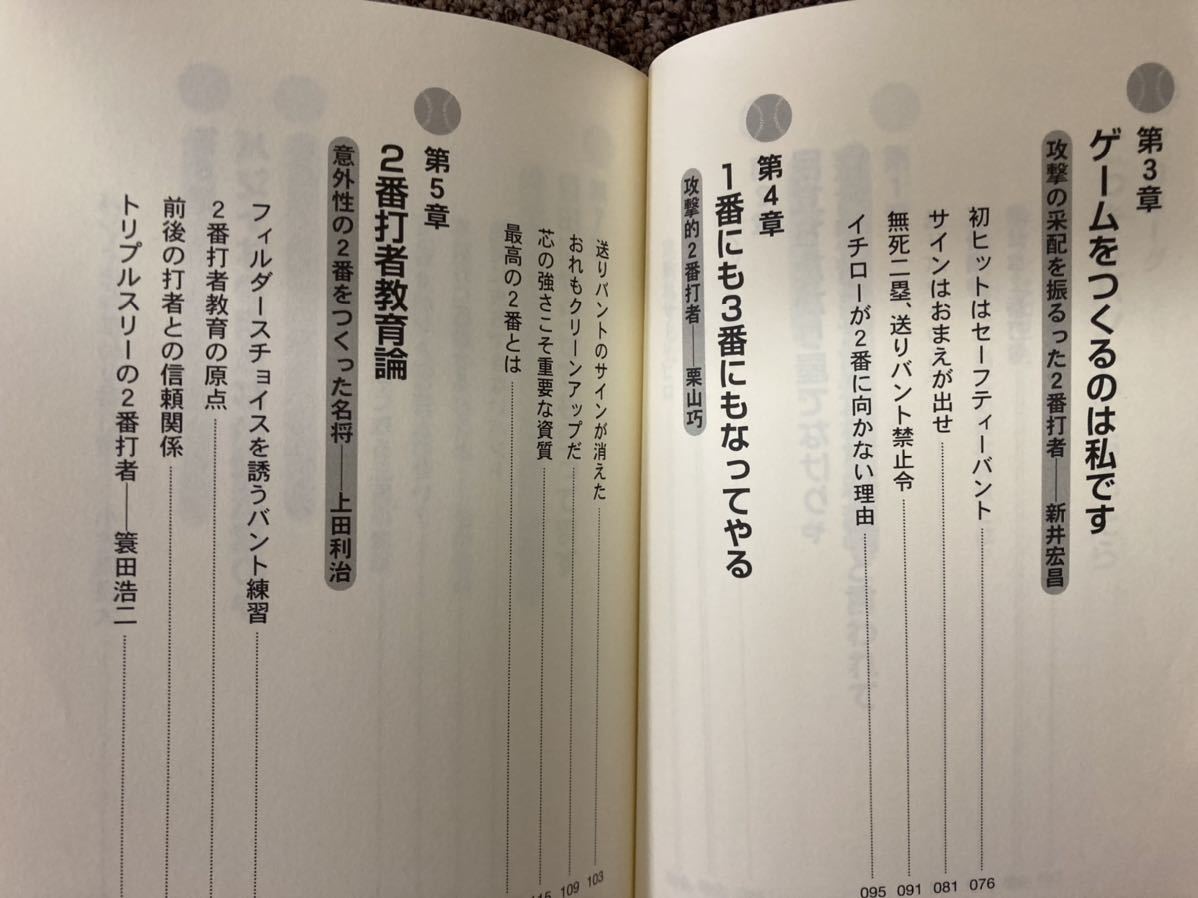 第3章
ゲームをつくるのは私です
攻撃の采配を振るった2番打者——新井宏昌
初ヒットはセーフティーバント 076
サインはおまえが出せ 081
無死二塁、送りバント禁止令 091
イチローが2番に向かない理由 095
第4章
1番にも3番にもなってやる
攻撃的2番打者——栗山巧
送りバントのサインが消えた 103
おれもクリーンアップだ 109
芯の強さこそ重要な資質
最高の2番とは
第5章
2番打者教育論
意外性の2番をつくった名将——上田利治
フィルダースチョイスを誘うバント練習
2番打者教育の原点
前後の打者との信頼関係
トリプルスリーの2番打者——簑田浩二